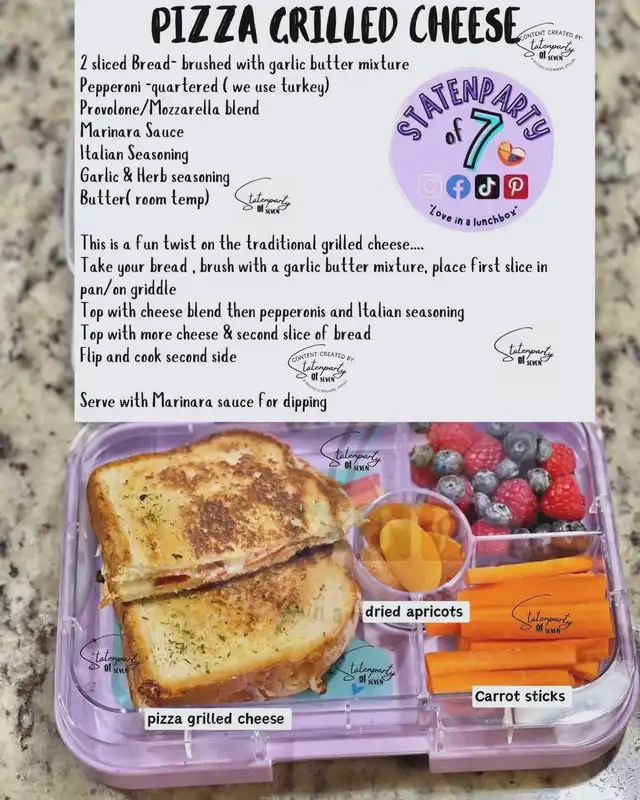 PIZZA GRILLED CHEESE
CONTENT CREATED BY:
Statenparty
of SEVEN
2 sliced Bread- brushed with garlic butter mixture
Pepperoni -quartered ( we use turkey)
Provolone/Mozzarella blend
Marinara Sauce
Italian Seasoning
Garlic & Herb seasoning
Butter( room temp)
Statenparty
of SEVEN
STATENPARTY
of 7
"Love in a lunchbox"
This is a fun twist on the traditional grilled cheese....
Take your bread , brush with a garlic butter mixture, place first slice in
pan/on griddle
Top with cheese blend then pepperonis and Italian seasoning
Top with more cheese & second slice of bread
Flip and cook second side
CONTENT CREATED BY:
Statenparty
of SEVEN
Statenparty
of SEVEN
Serve with Marinara sauce for dipping
Statenparty
of SEVEN
dried apricots
Statenparty
of SEVEN
Statenparty
of SEVEN
Statenparty
of SEVEN
Carrot sticks
pizza grilled cheese